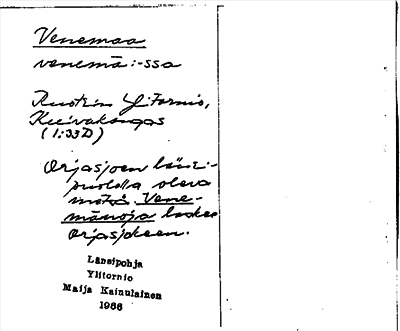 Venemaa
venemā :-ssa
Ruotsin Yli-Tornio,
Kuivakangas
(1:33D)
Orjasjoen länsi-
puolella oleva
metsä. Vene-
mānoja laskee
Orjasjokeen.
Länsipohja
Ylitornio
Maija Kainulainen
1966